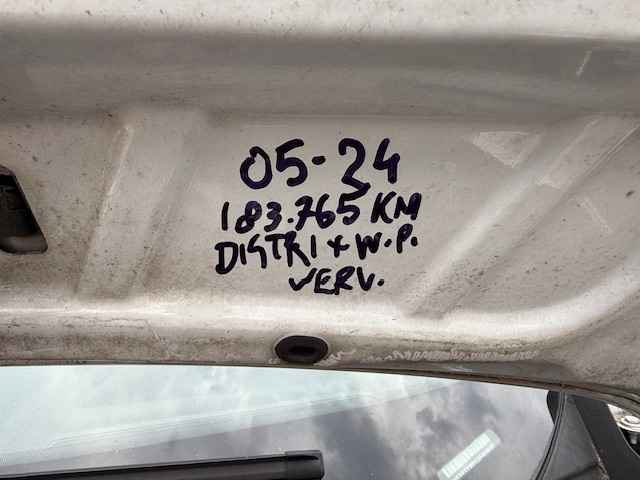 05-24
183.765 KM
DISTRI + W.P.
VERV.